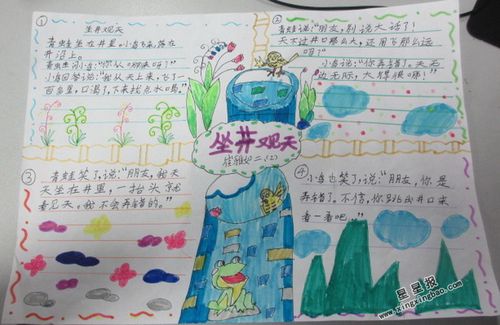 ①
坐井观天
青蛙坐在井里,小鸟飞来,落在
井沿上。
青蛙问小鸟:“你从哪儿来呀?”
小鸟回答说:“我从天上来,飞了一
百多里,口渴了,下来找点水喝。”
②
青蛙说:“朋友,别说大话了!
天不过井口那么大,还用飞那么远
吗?”
小鸟说:“你弄错了。天无
边无际,大得很哪!”
坐井观天
二.(2)
③
青蛙笑了,说:“朋友,我天
天坐在井里,一抬头就
看见天,我不会弄错的。”
④
小鸟也笑了,说:“朋友,你是
弄错了。不信,你跳出井口来
看一看吧。”
星星报
www.xingxingbao.com